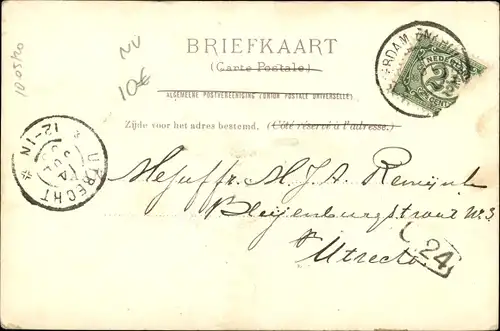 BRIEFKAART
(Carte Postale)
ALGEMEENE POSTVEREENIGING (UNION POSTALE UNIVERSELLE)
Zijde voor het adres bestemd. (Côté réservé à l'adresse.)
NEDERLAND
2½
CENT
UTRECHT
12-1N
Mejuffr. M. J. A.
Bleijenburgstraat No. 3
Utrecht
24
10€